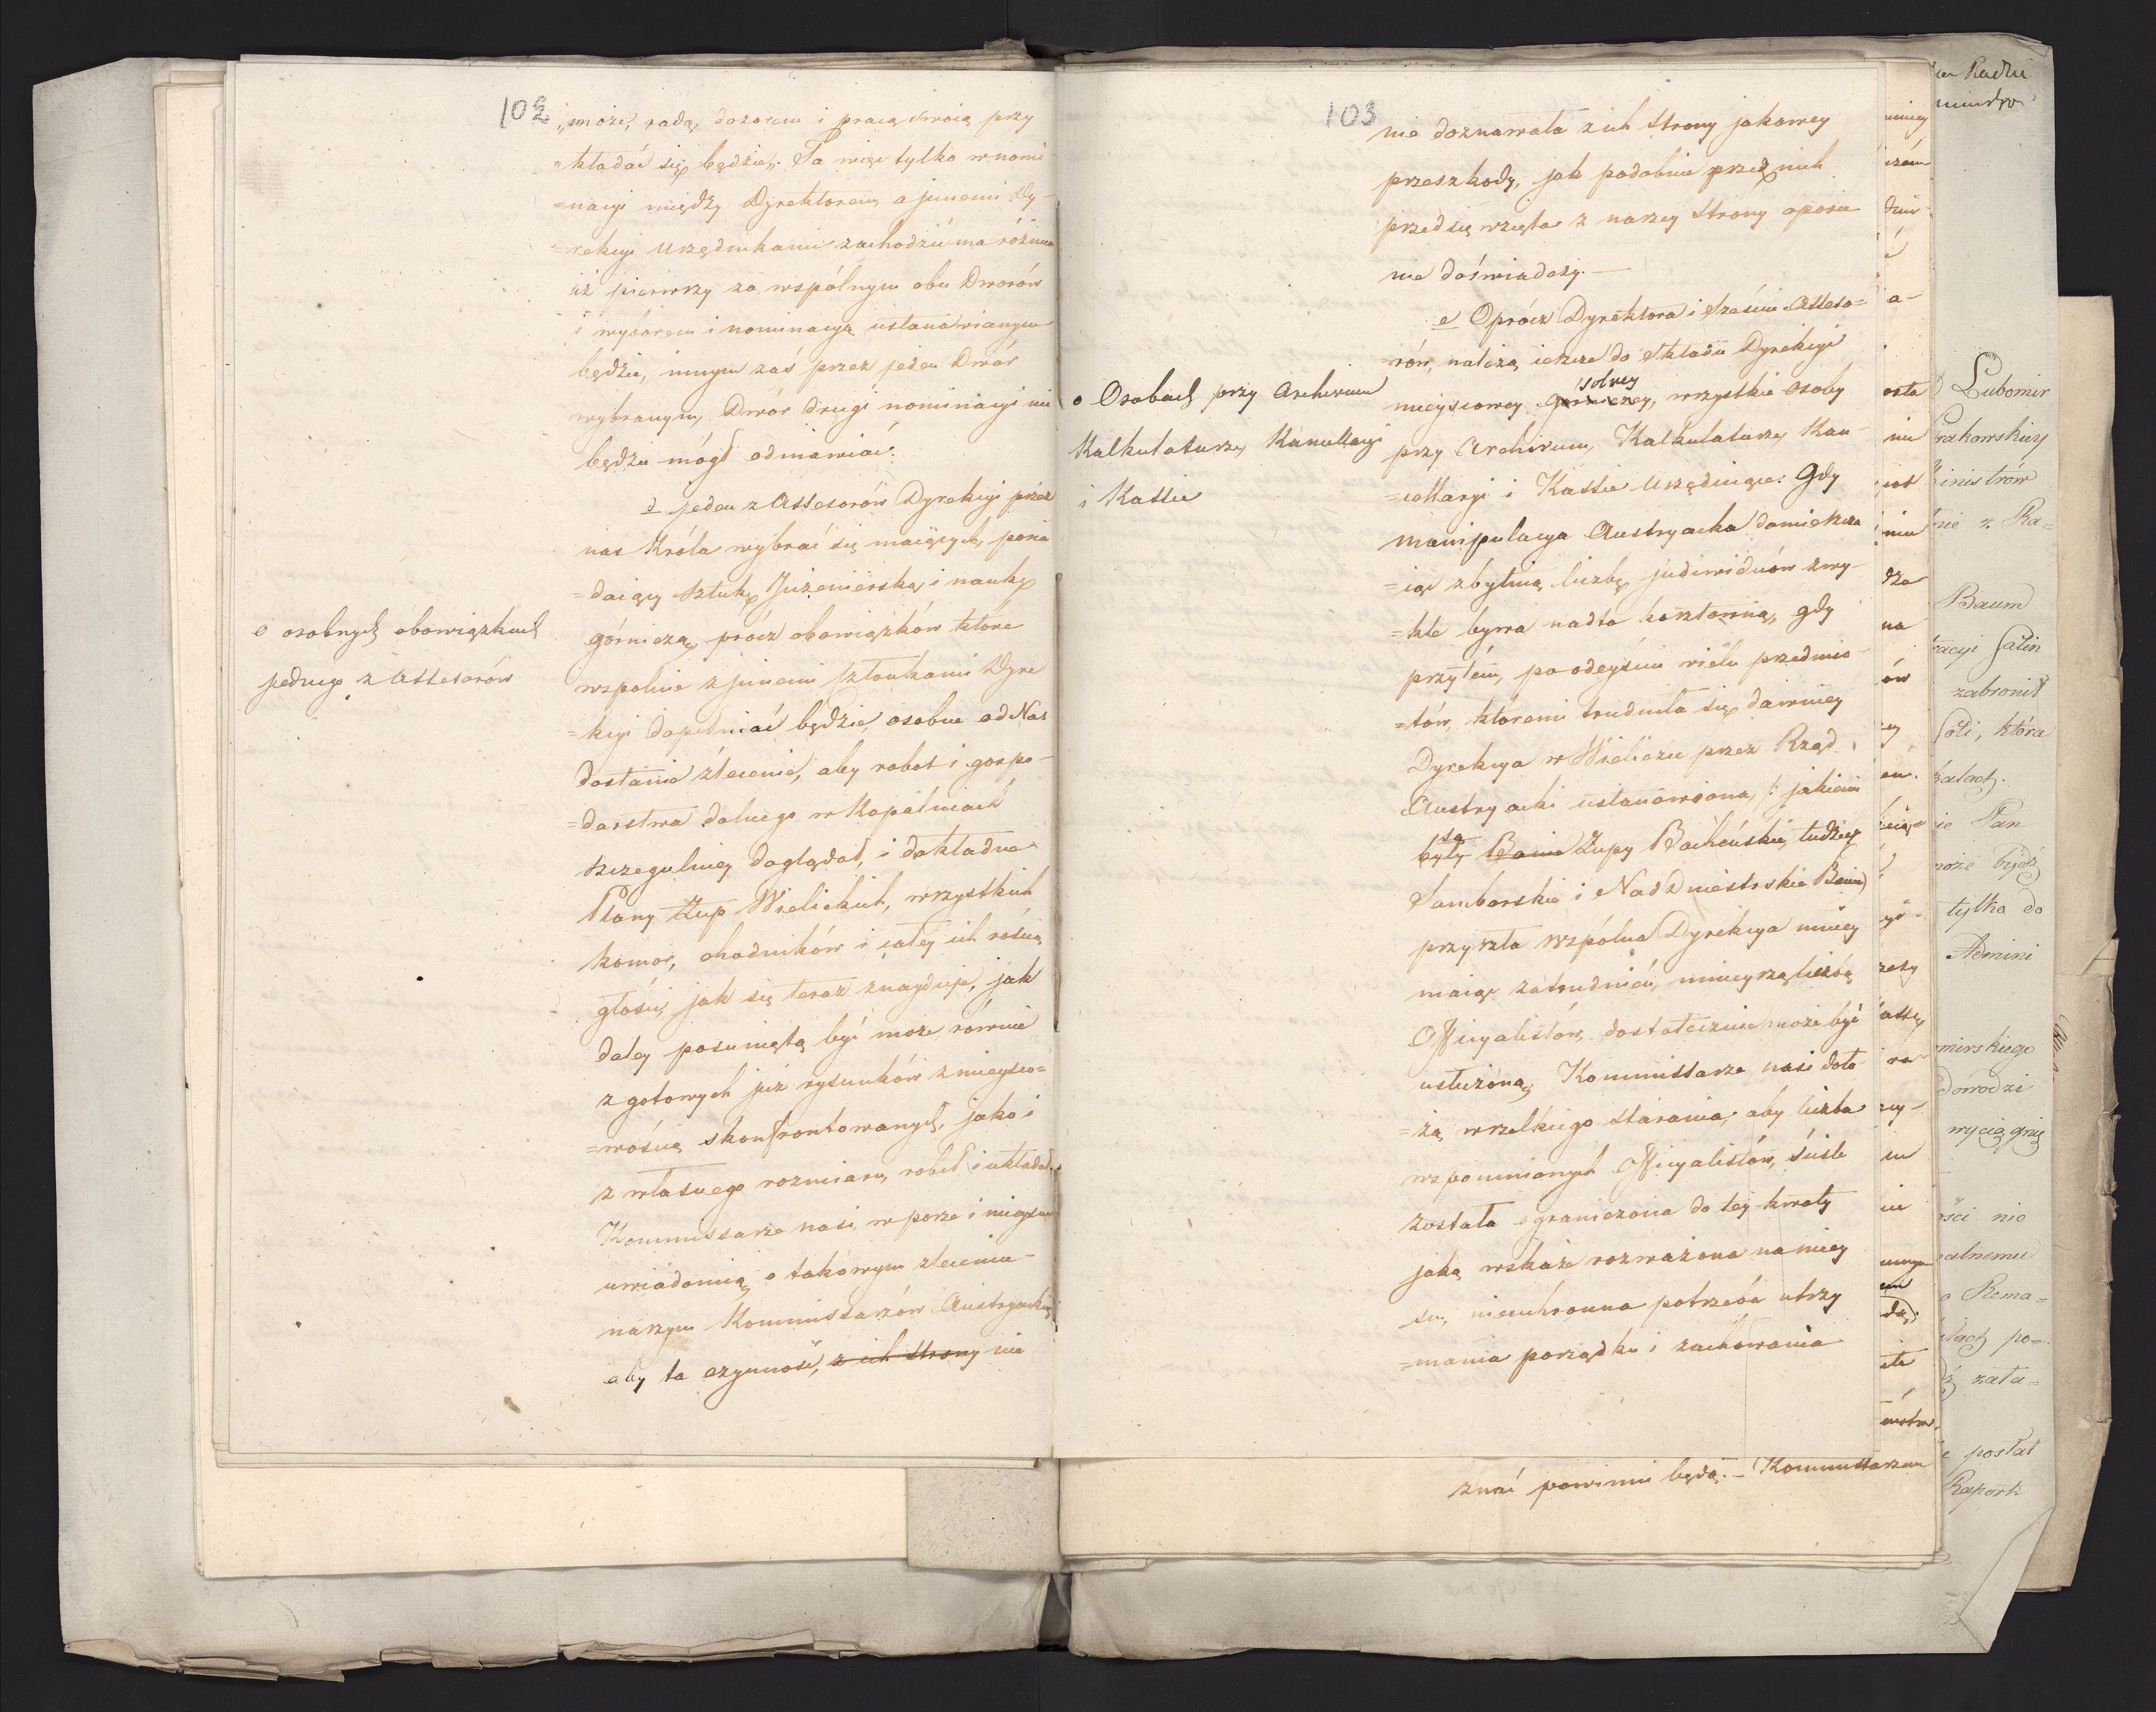 102
„może, radą, dozorem i pracą swoią przy
„kładać się będzie„. Ta więc tylko w nomi-
=nacyi między Dyrektorem, a innemi Dy-
=rekcyi Urzędnikami zachodzić ma różnica
iż pierwszy za wspólnym obu Dworów
wyborem i nominacyą ustanawianym
będzie, innym zaś przez jeden Dwór
wybranym, Dwór drugi nominacyi nie
będzie mógł odmawiać.
d jeden z Assesorów Dyrekcyi przez
nas Króla wybrać się maiących, posia
=daiący sztukę Inżenierską i naukę
górniczą, prócz obowiązków które
wspolnie z innemi członkami Dyre
=kcyi dopełniać będzie, osobne od Nas
dostanie zlecenie, aby robot i gospo-
=darstwa dolnego w Kopalniach
szczegulniey doglądał, i dokładne
Plany Żup Wielickich, wszystkich
komor, chodników i całey ich rozcią
głości, jak się teraz znayduje, jak
daley posuniętą być może równie
z gotowych już rysunków z mieysco=
=wością skonfrontowanych, jako i
z własnego rozmiaru, robił i układał.
Kommissarze nasi, w porze i mieyscu
uwiadomią o takowym zleceniu
naszym Kommissarzów Austryackich
aby ta czynność, z ich strony nie
o osobnych obowiązkach
jednego z Assesorów
103
nie doznawała z ich strony jakowey
przeszkody, jak podobnie przez nich
przedsięwzięta z naszey strony oporu
nie doświadczy.—
e Oprócz Dyrektora i sześciu Asseso=
=rów, należą ieszcze do składu Dyrekcyi
solney
mieyscowey górniczey, wszystkie osoby
przy Archivum, Kalkulaturze, Kan-
=cellaryi i Kassie Urzęduiące: Gdy
manipulacya Austryacka domieszcza
=iąc zbytnią liczbę individuów zwy-
=kle bywa nadto kosztowną, gdy
przytém, po odeyściu wielu przedmio-
=tów, któremi trudniła się dawniey
Dyrekcya w Wieliczce przez Rząd
Austryacki ustanowiona, /: jakiemi
są
były Banie Żupy Bocheńskie, tudzież
Samborskie i Naddniestrskie Banie)
przyszła wspólna Dyrekcya mniey
maiąc zatrudnień, mnieyszą liczbą
Officyalistów, dostatecznie może być
usłużoną, Kommissarze nasi doło
=żą wszelkiego starania, aby liczba
wspomnionych Officyalistów, ściśle
została ograniczona do tey kwoty
jaką wskaże rozważona na miey
scu, nieuchronna potrzeba utrzy
=mania porządku i zachowania
o Osobach przy Archivum
Kalkulaturze, Kancellaryi
i Kassie
znać powinni będą. – Kommissarzom
Lubomir
Krakowskiey
Ministrów
Baum
Salin
zabronił
soli, która
Pan
może bydź
tylko do
Admini
dowodzi
wyciągnię
nie
Rema=
po=
zała=
posłał
Raport